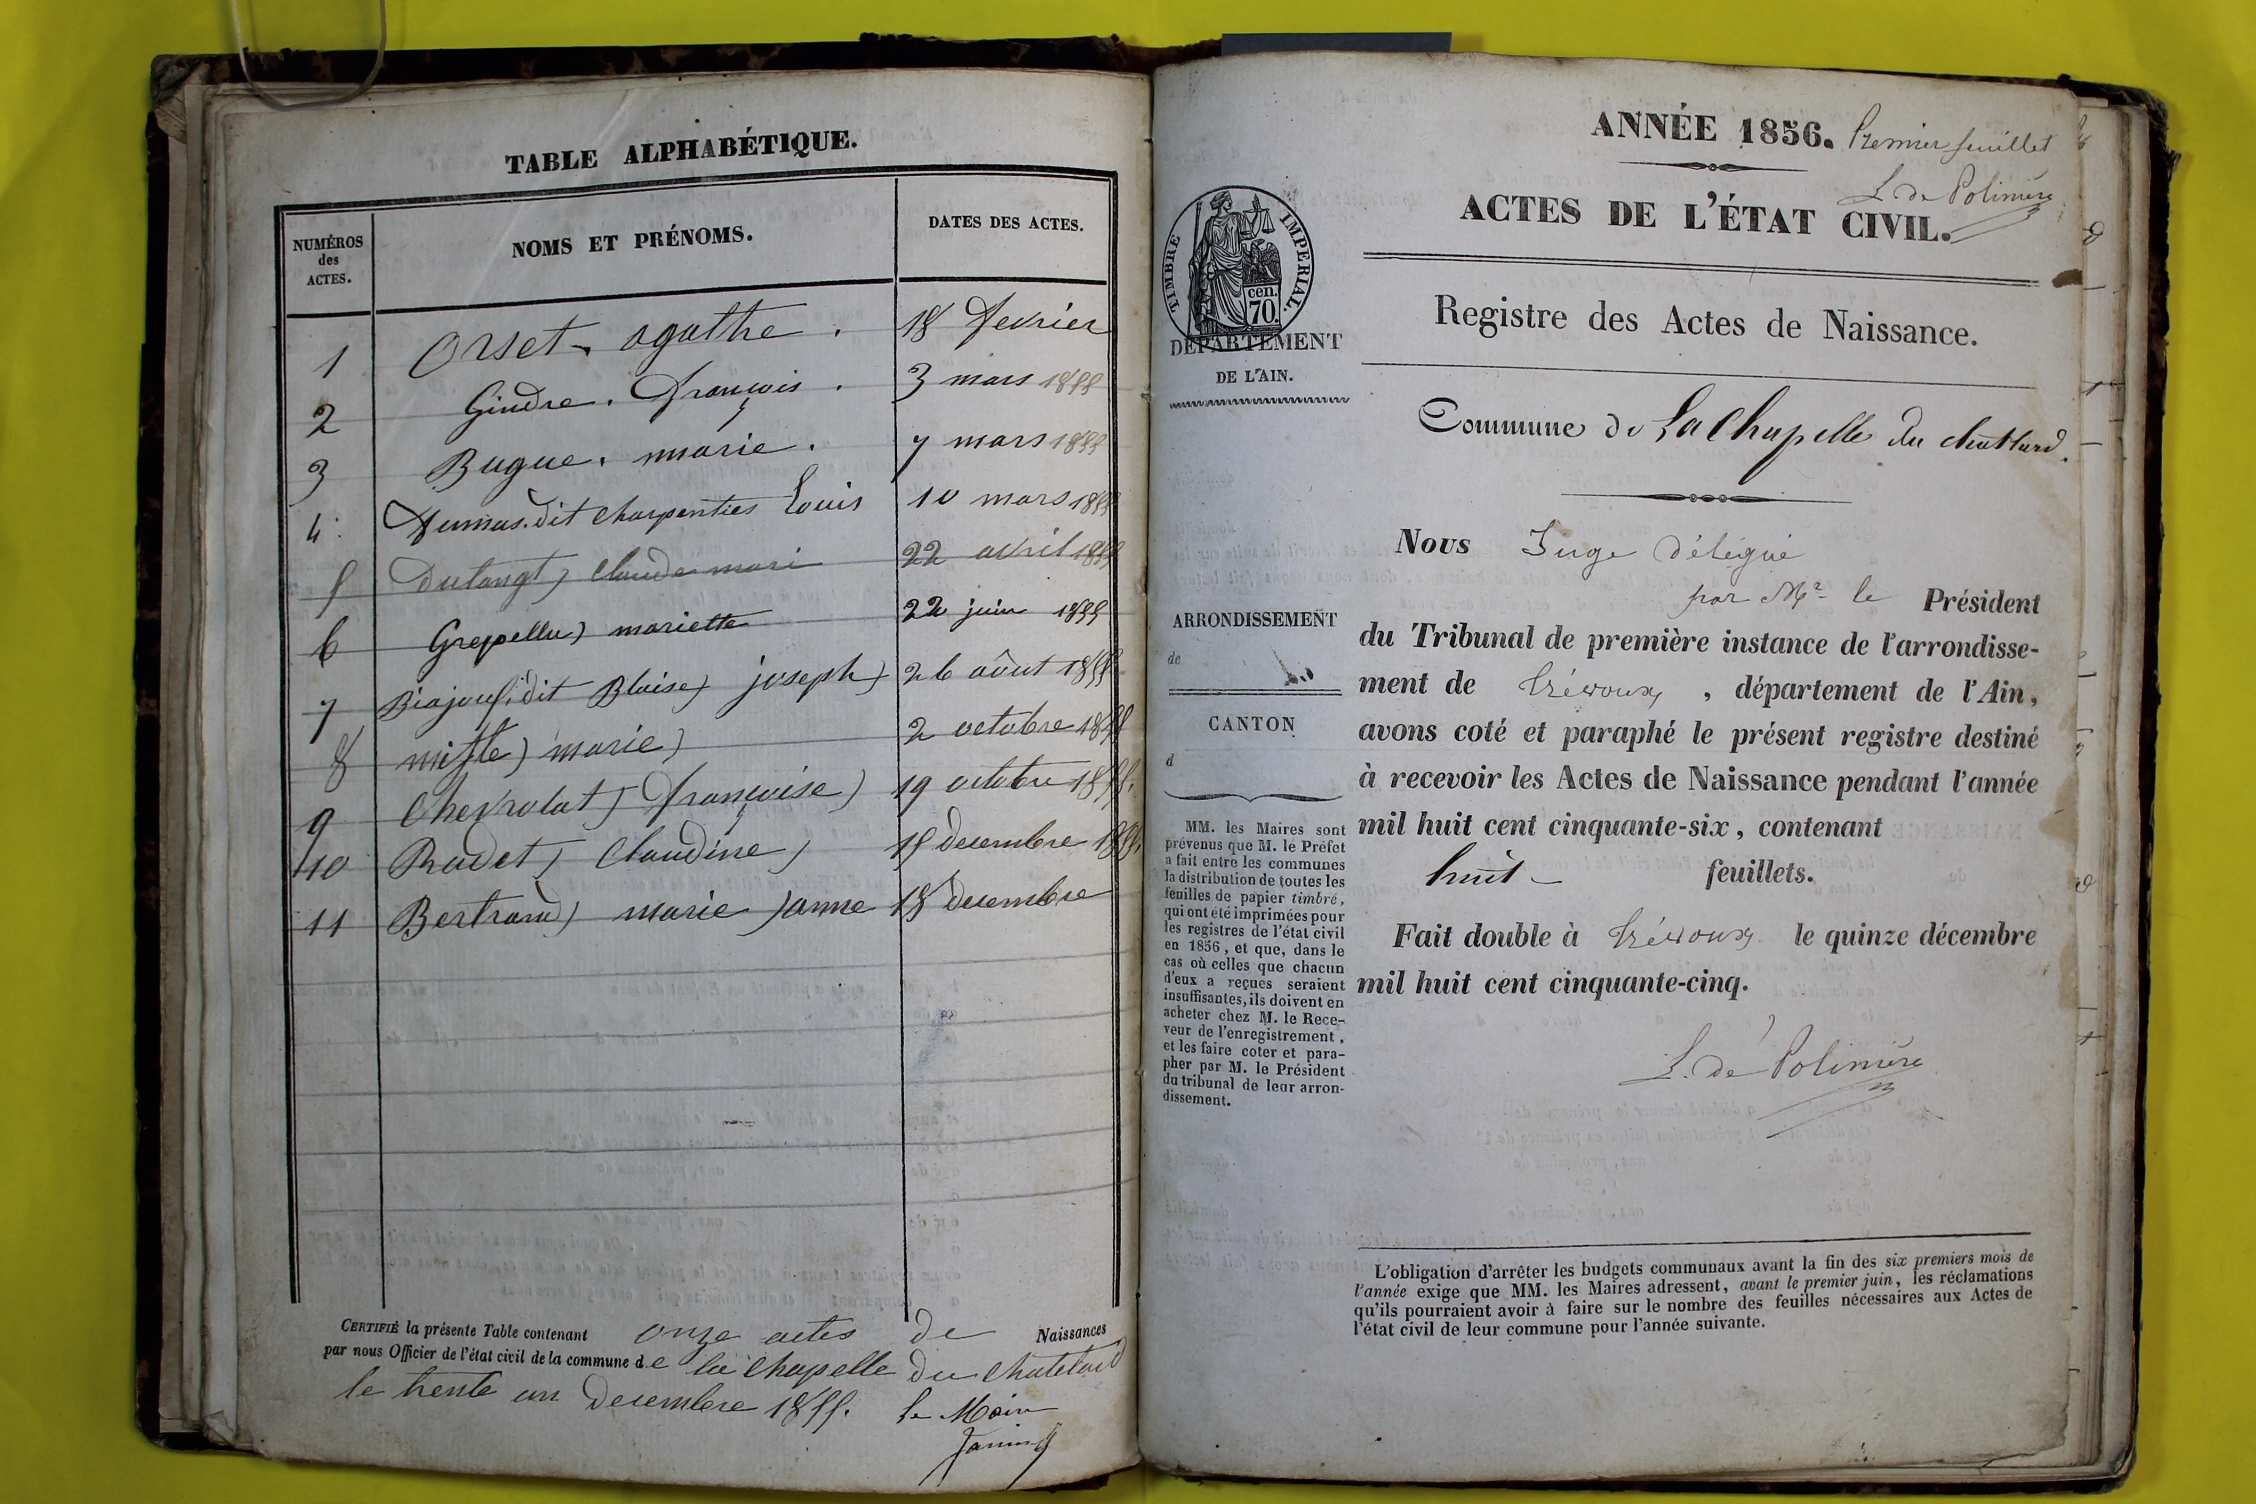 TABLE ALPHABÉTIQUE.
NUMÉROS des ACTES.
NOMS ET PRÉNOMS.
DATES DES ACTES.
1 Orset agathe. 18 fevrier
2 Gindre. françois. 3 mars 1855
3 Bugue. marie. 7 mars 1855
4 Dumas. dit charpentier Louis 10 mars 1855
5 Dutangt claude mari 22 avril 1855
6 Grepellu mariette 22 juin 1855
7 dit Blaise joseph 26 aôut 1855
8 marie 2 octobre 1855
9 Chevrolat françoise 19 octobre 1855.
10 Rudet Claudine 15 decembre 1855.
11 Bertrand marie janne 18 decembre
CERTIFIÉ la présente Table contenant onze actes de Naissances
par nous Officier de l'état civil de la commune de la chapelle du chatelard
le trente un decembre 1855. le Maire
Janin
ANNÉE 1856. Premier feuillet
L. de Polinière
ACTES DE L'ÉTAT CIVIL.
TIMBRE IMPERIAL.
cen. 70.
Registre des Actes de Naissance.
DÉPARTEMENT
DE L'AIN.
Commune de La Chapelle du chattard.
Nous Juge délégué
par Mr. le Président
ARRONDISSEMENT
de
CANTON
d
du Tribunal de première instance de l'arrondisse-
ment de trévoux, département de l'Ain,
avons coté et paraphé le présent registre destiné
à recevoir les Actes de Naissance pendant l'année
mil huit cent cinquante-six, contenant
huit feuillets.
Fait double à trévoux le quinze décembre
mil huit cent cinquante-cinq.
L. de Polinière
MM. les Maires sont
prévenus que M. le Préfet
a fait entre les communes
la distribution de toutes les
feuilles de papier timbré,
qui ont été imprimées pour
les registres de l'état civil
en 1856, et que, dans le
cas où celles que chacun
d'eux a reçues seraient
insuffisantes, ils doivent en
acheter chez M. le Rece-
veur de l'enregistrement,
et les faire coter et para-
pher par M. le Président
du tribunal de leur arron-
dissement.
L'obligation d'arrêter les budgets communaux avant la fin des six premiers mois de
l'année exige que MM. les Maires adressent, avant le premier juin, les réclamations
qu'ils pourraient avoir à faire sur le nombre des feuilles nécessaires aux Actes de
l'état civil de leur commune pour l'année suivante.